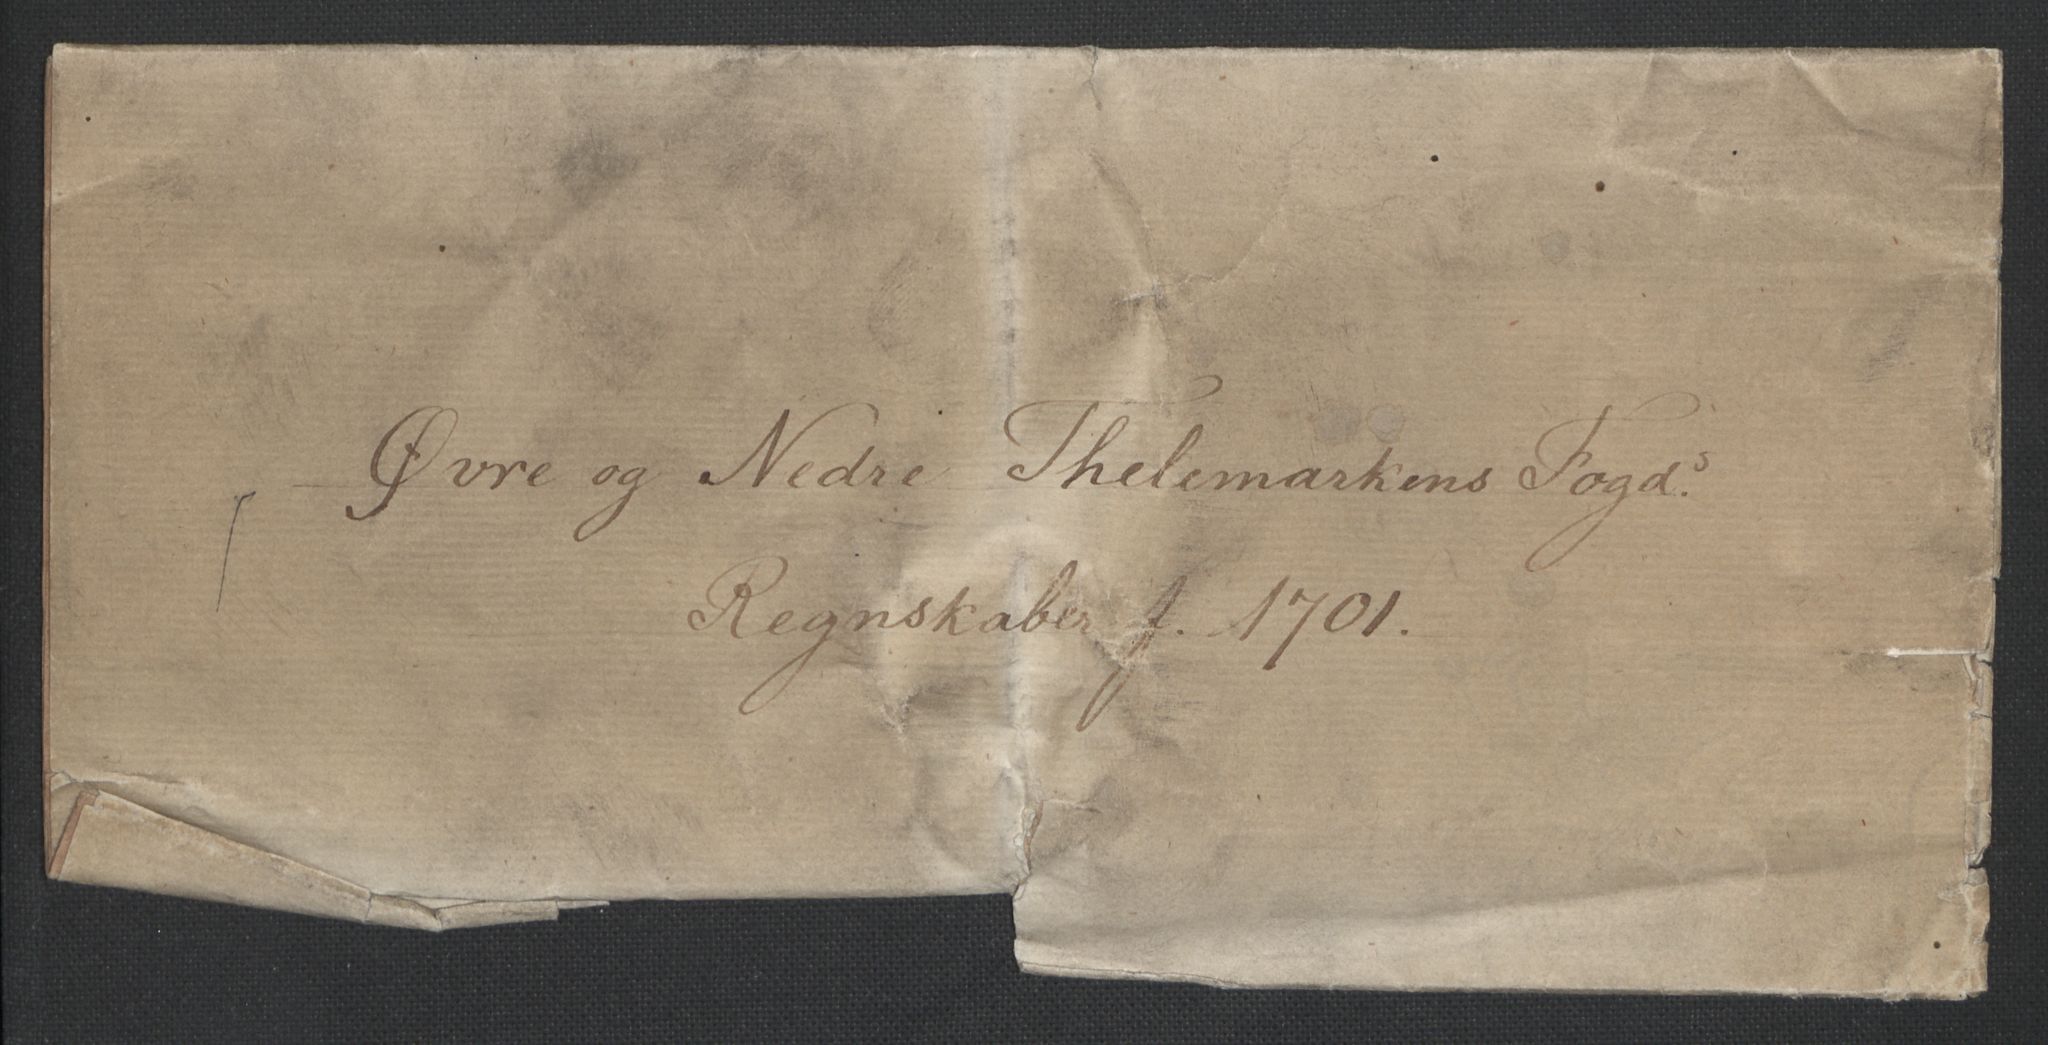 Øvre og Nedre Thelemarkens Fogd.s
Regnskaber f. 1701.